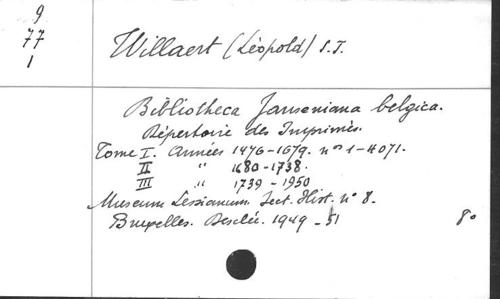 9
77
1
Willaert (Léopold) S.J.
Bibliotheca Janseniana belgica.
Répertoire des Imprimés.
Tome I. Années 1476-1679. nos 1-4071.
II " 1680-1738.
III " 1739-1950
Museum Lessianum Sect. Hist. n° 8.
Bruxelles. Desclée. 1949-51 8°